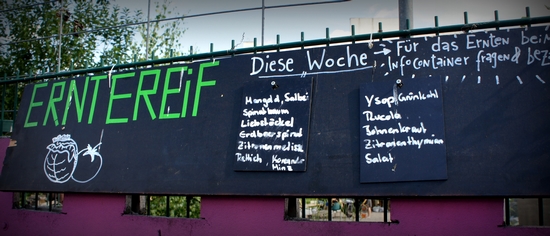 ERNTEREiF
Diese Woche → Für das Ernten beim
Infocontainer fragen & bez
Mangold, Salbei
Spinatbaum
Liebstöckel
Erdbeerspinat
Zitronenmelisse
Rettich Koriander
Minz
Ysop Grünkohl
Rucola
Bohnenkraut
Zitronenthymian
Salat